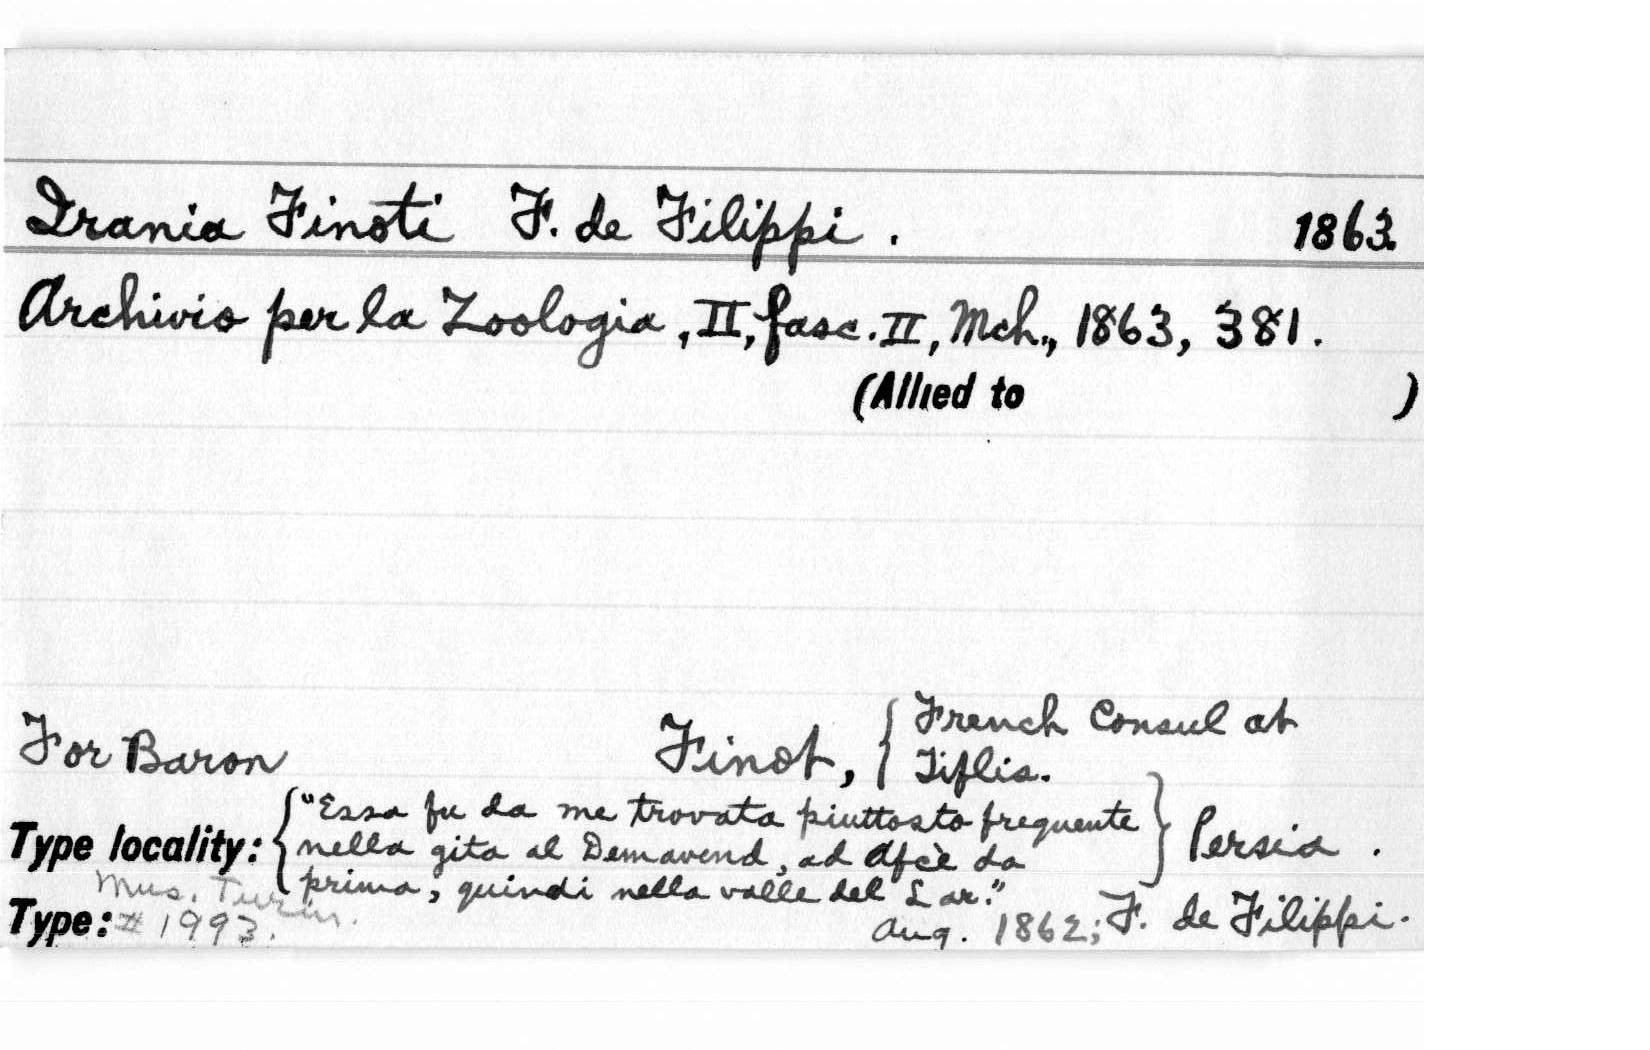 Irania Finoti F. de Filippi. 1863.
Archivio per la Zoologia, II, fasc. II, Mch., 1863, 381.
(Allied to )
For Baron Finot, { French Consul at
Tiflis.
Type locality: { "Essa fu da me trovata piuttosto frequente
nella gita al Demavend, ad Afcè da
prima, quindi nella valle del Lar." } Persia.
Mus. Turin.
Type: # 1993. Aug. 1862; F. de Filippi.